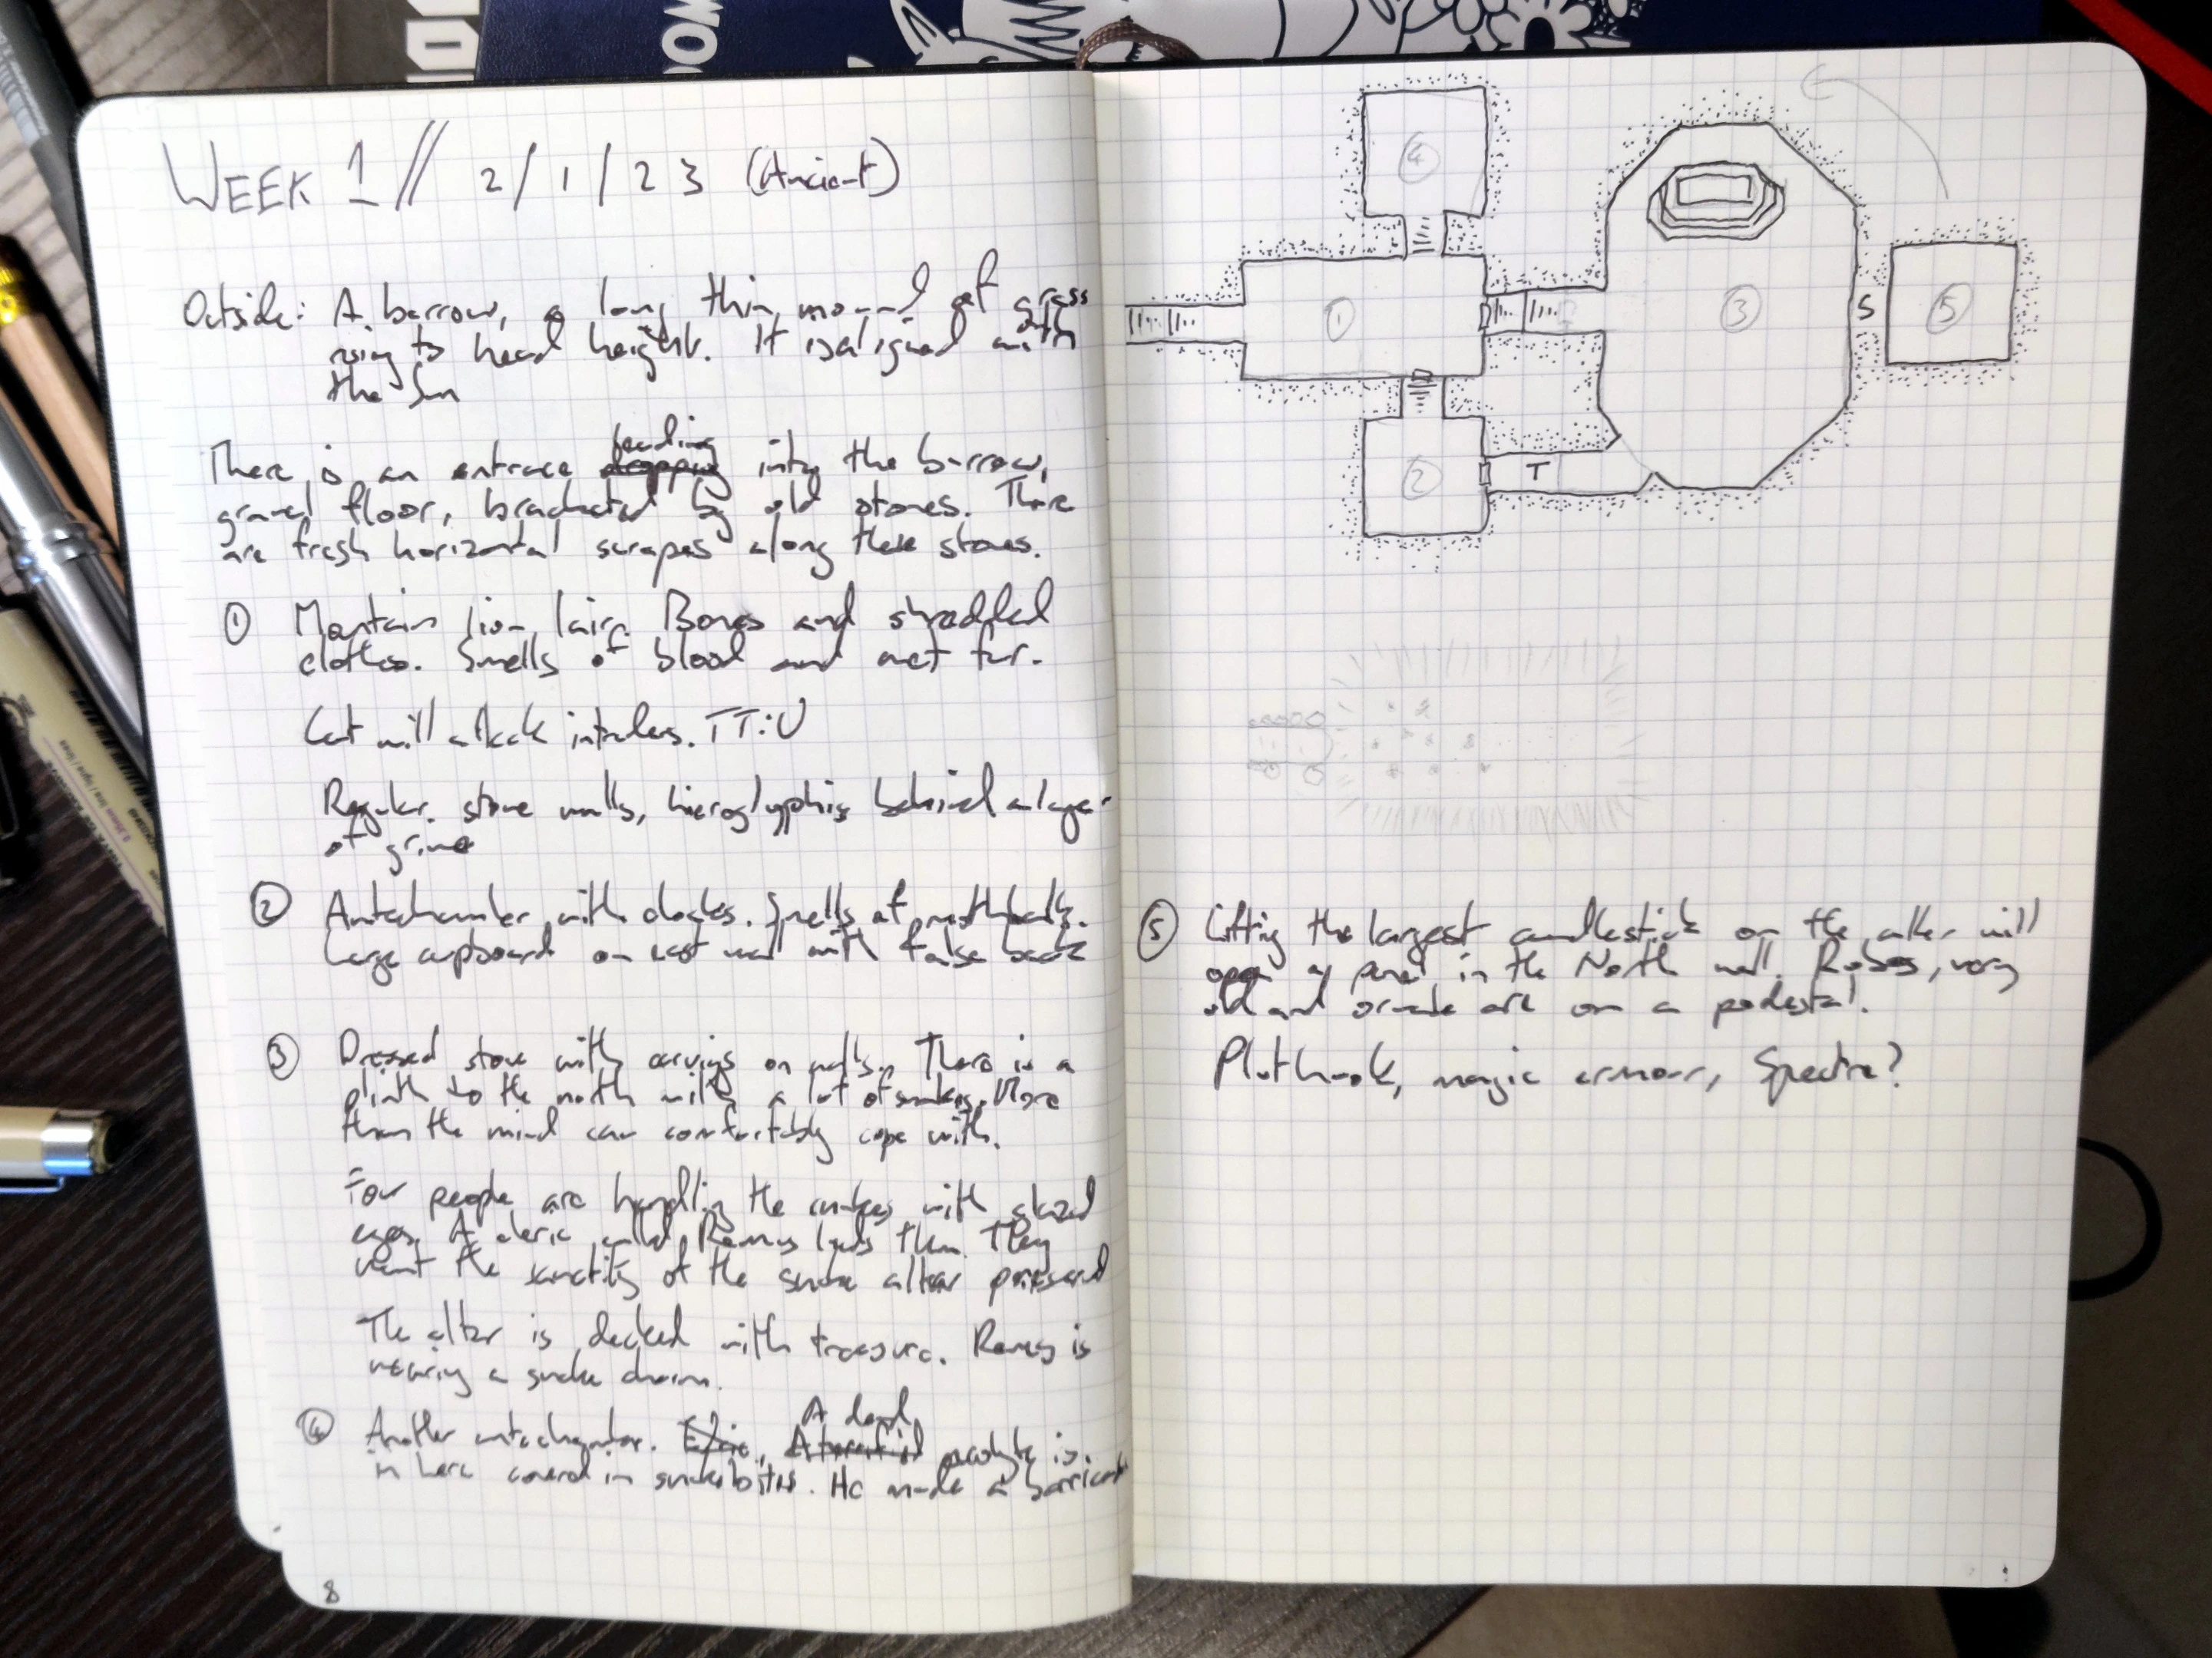 WEEK 1 // 2/1/23 (Ancient)
Outside: A barrow, a long thin mound of grass
rising to head height. It is aligned with
the Sun
There is an entrace leading into the barrow,
gravel floor, bracketed by old stones. There
are fresh horizontal scrapes along these stones.
① Mountain lion lair. Bones and shredded
clothes. Smells of blood and wet fur.
Cat will attack intruders. TT:U
Regular stone walls, hieroglyphics behind a layer
of grime
② Antechamber with cloaks. Smells of mothballs.
Large cupboard on east wall with false back
③ Dressed stone with carvings on walls. There is a
plinth to the north with a lot of snakes. More
than the mind can comfortably cope with.
Four people are handling the snakes with glazed
eyes. A cleric called Remus leads them. They
want the sanctity of the snake altar preserved
The altar is decked with treasure. Remus is
wearing a snake charm.
④ Another antechamber. A dead acolyte is
in here covered in snakebites. He made a barricade
8
4
1
3
S
5
2
T
⑤ Lifting the largest candlestick on the altar will
open a panel in the North wall. Robes, very
old and ornate are on a pedestal.
Plothook, magic armour, Spectre?